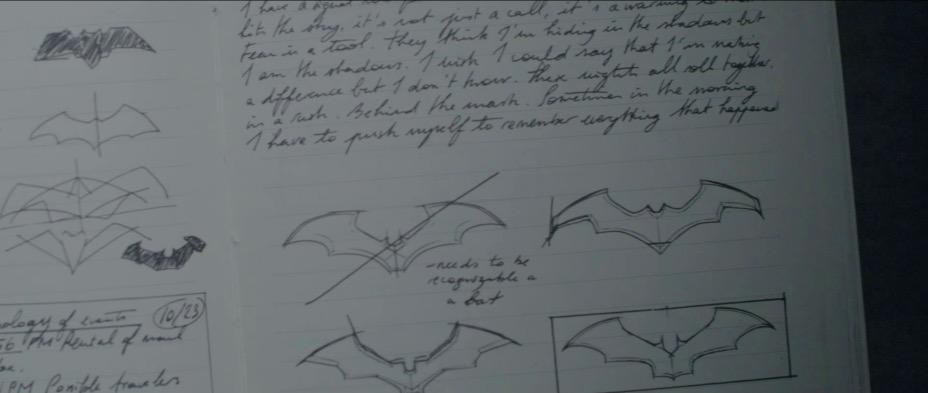 hits the sky, it's not just a call, it's a warning to
Fear is a tool. They think I'm hiding in the shadows but
I am the shadows. I wish I could say that I'm making
a difference but I don't know. These nights all roll together
in a rush. Behind the mask. Sometimes in the morning
I have to push myself to remember everything that happened
-needs to be
recognizable a
a bat
10/23
ology of events
PM
of
PM Possible travelers